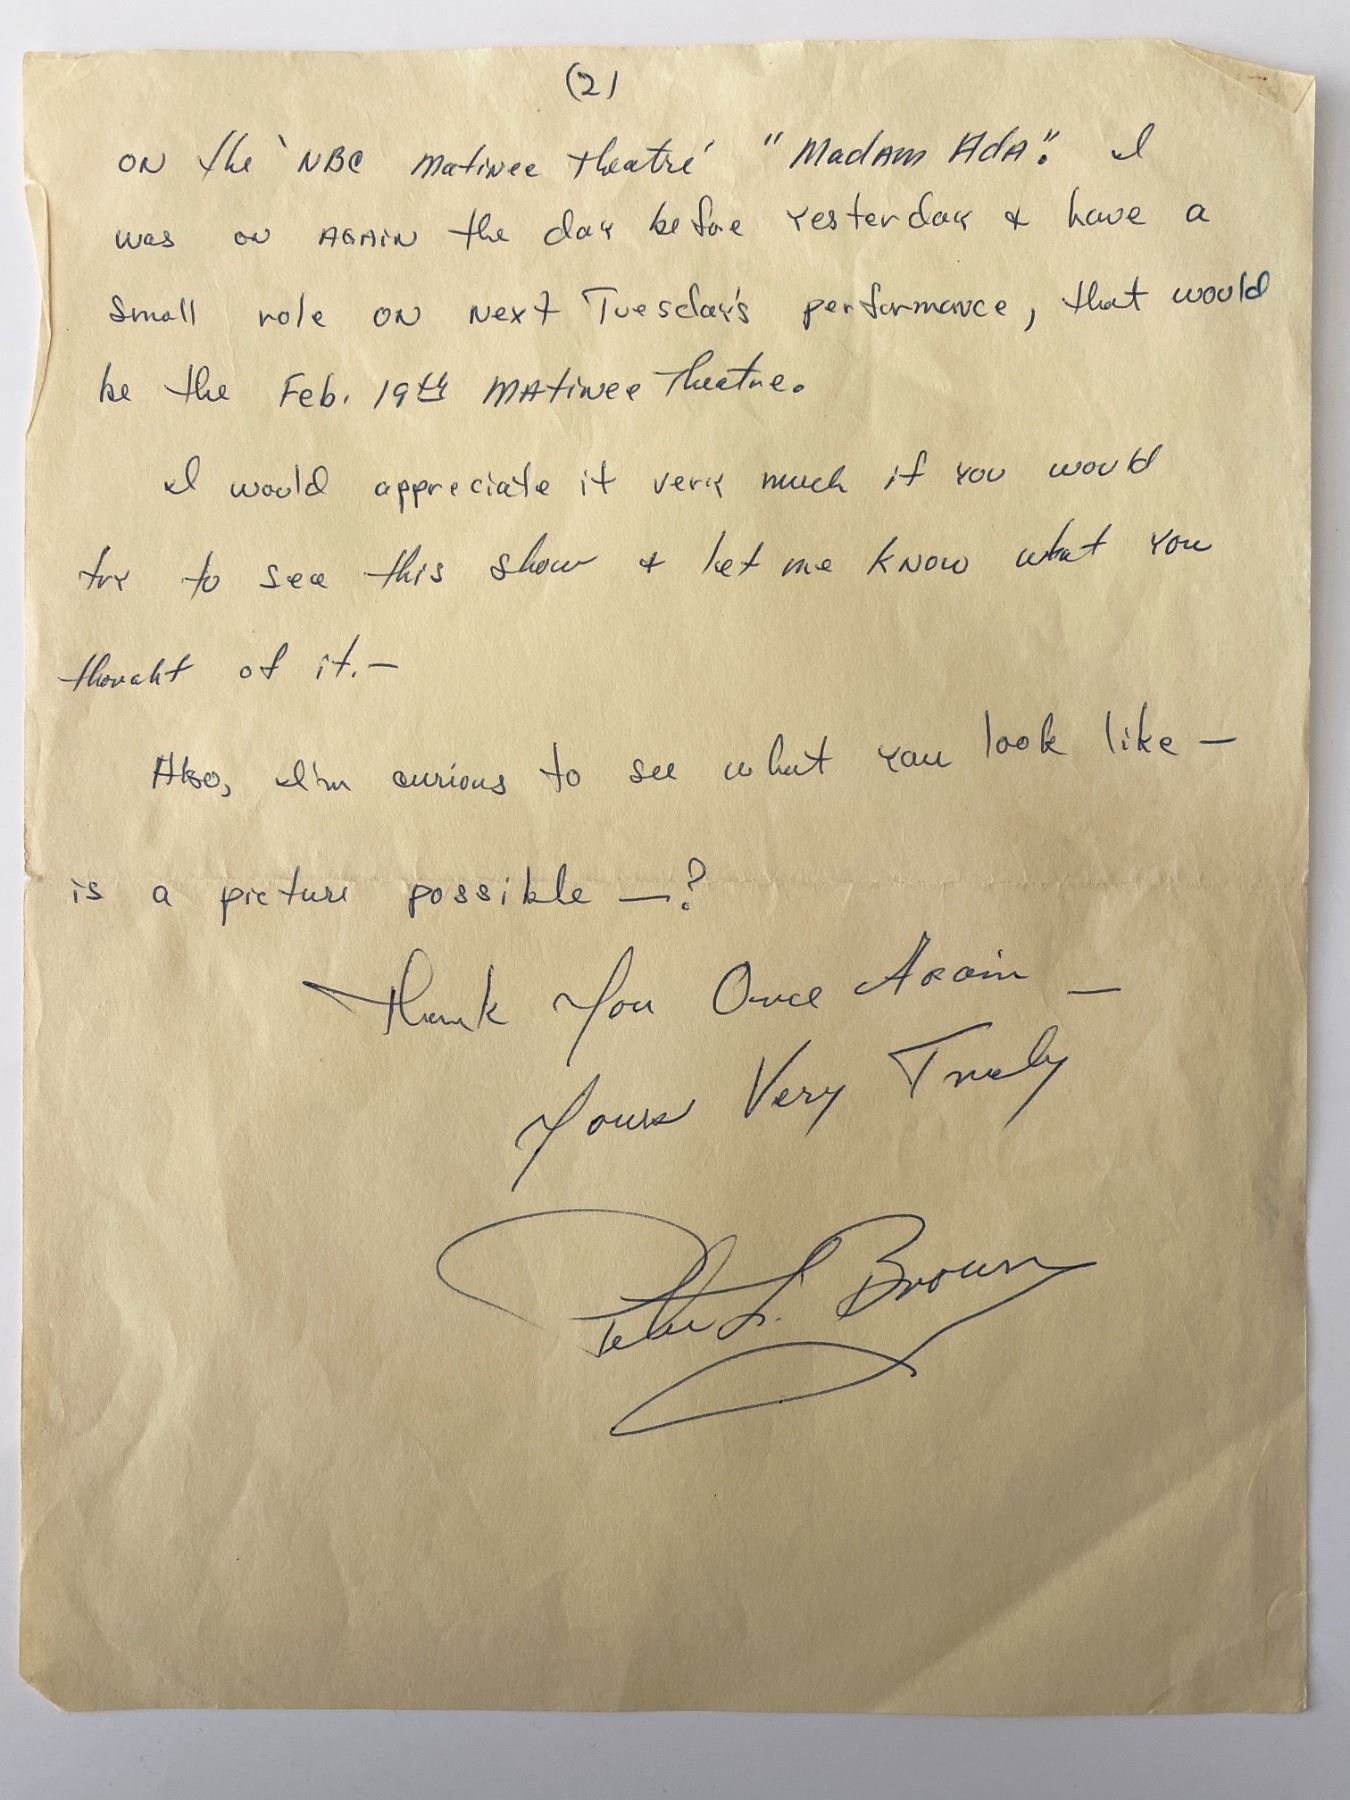 (2)
ON the 'NBC Matinee Theatre' "Madam Ada". I
was on AGAIN the day before yesterday & have a
small role ON Next Tuesday's performance, that would
be the Feb. 19th Matinee Theatre.
I would appreciate it very much if you would
try to see this show & let me know what you
thought of it.—
Also, I'm curious to see what you look like —
is a picture possible —?
Thank You Once Again —
Yours Very Truly
Peter L. Brown